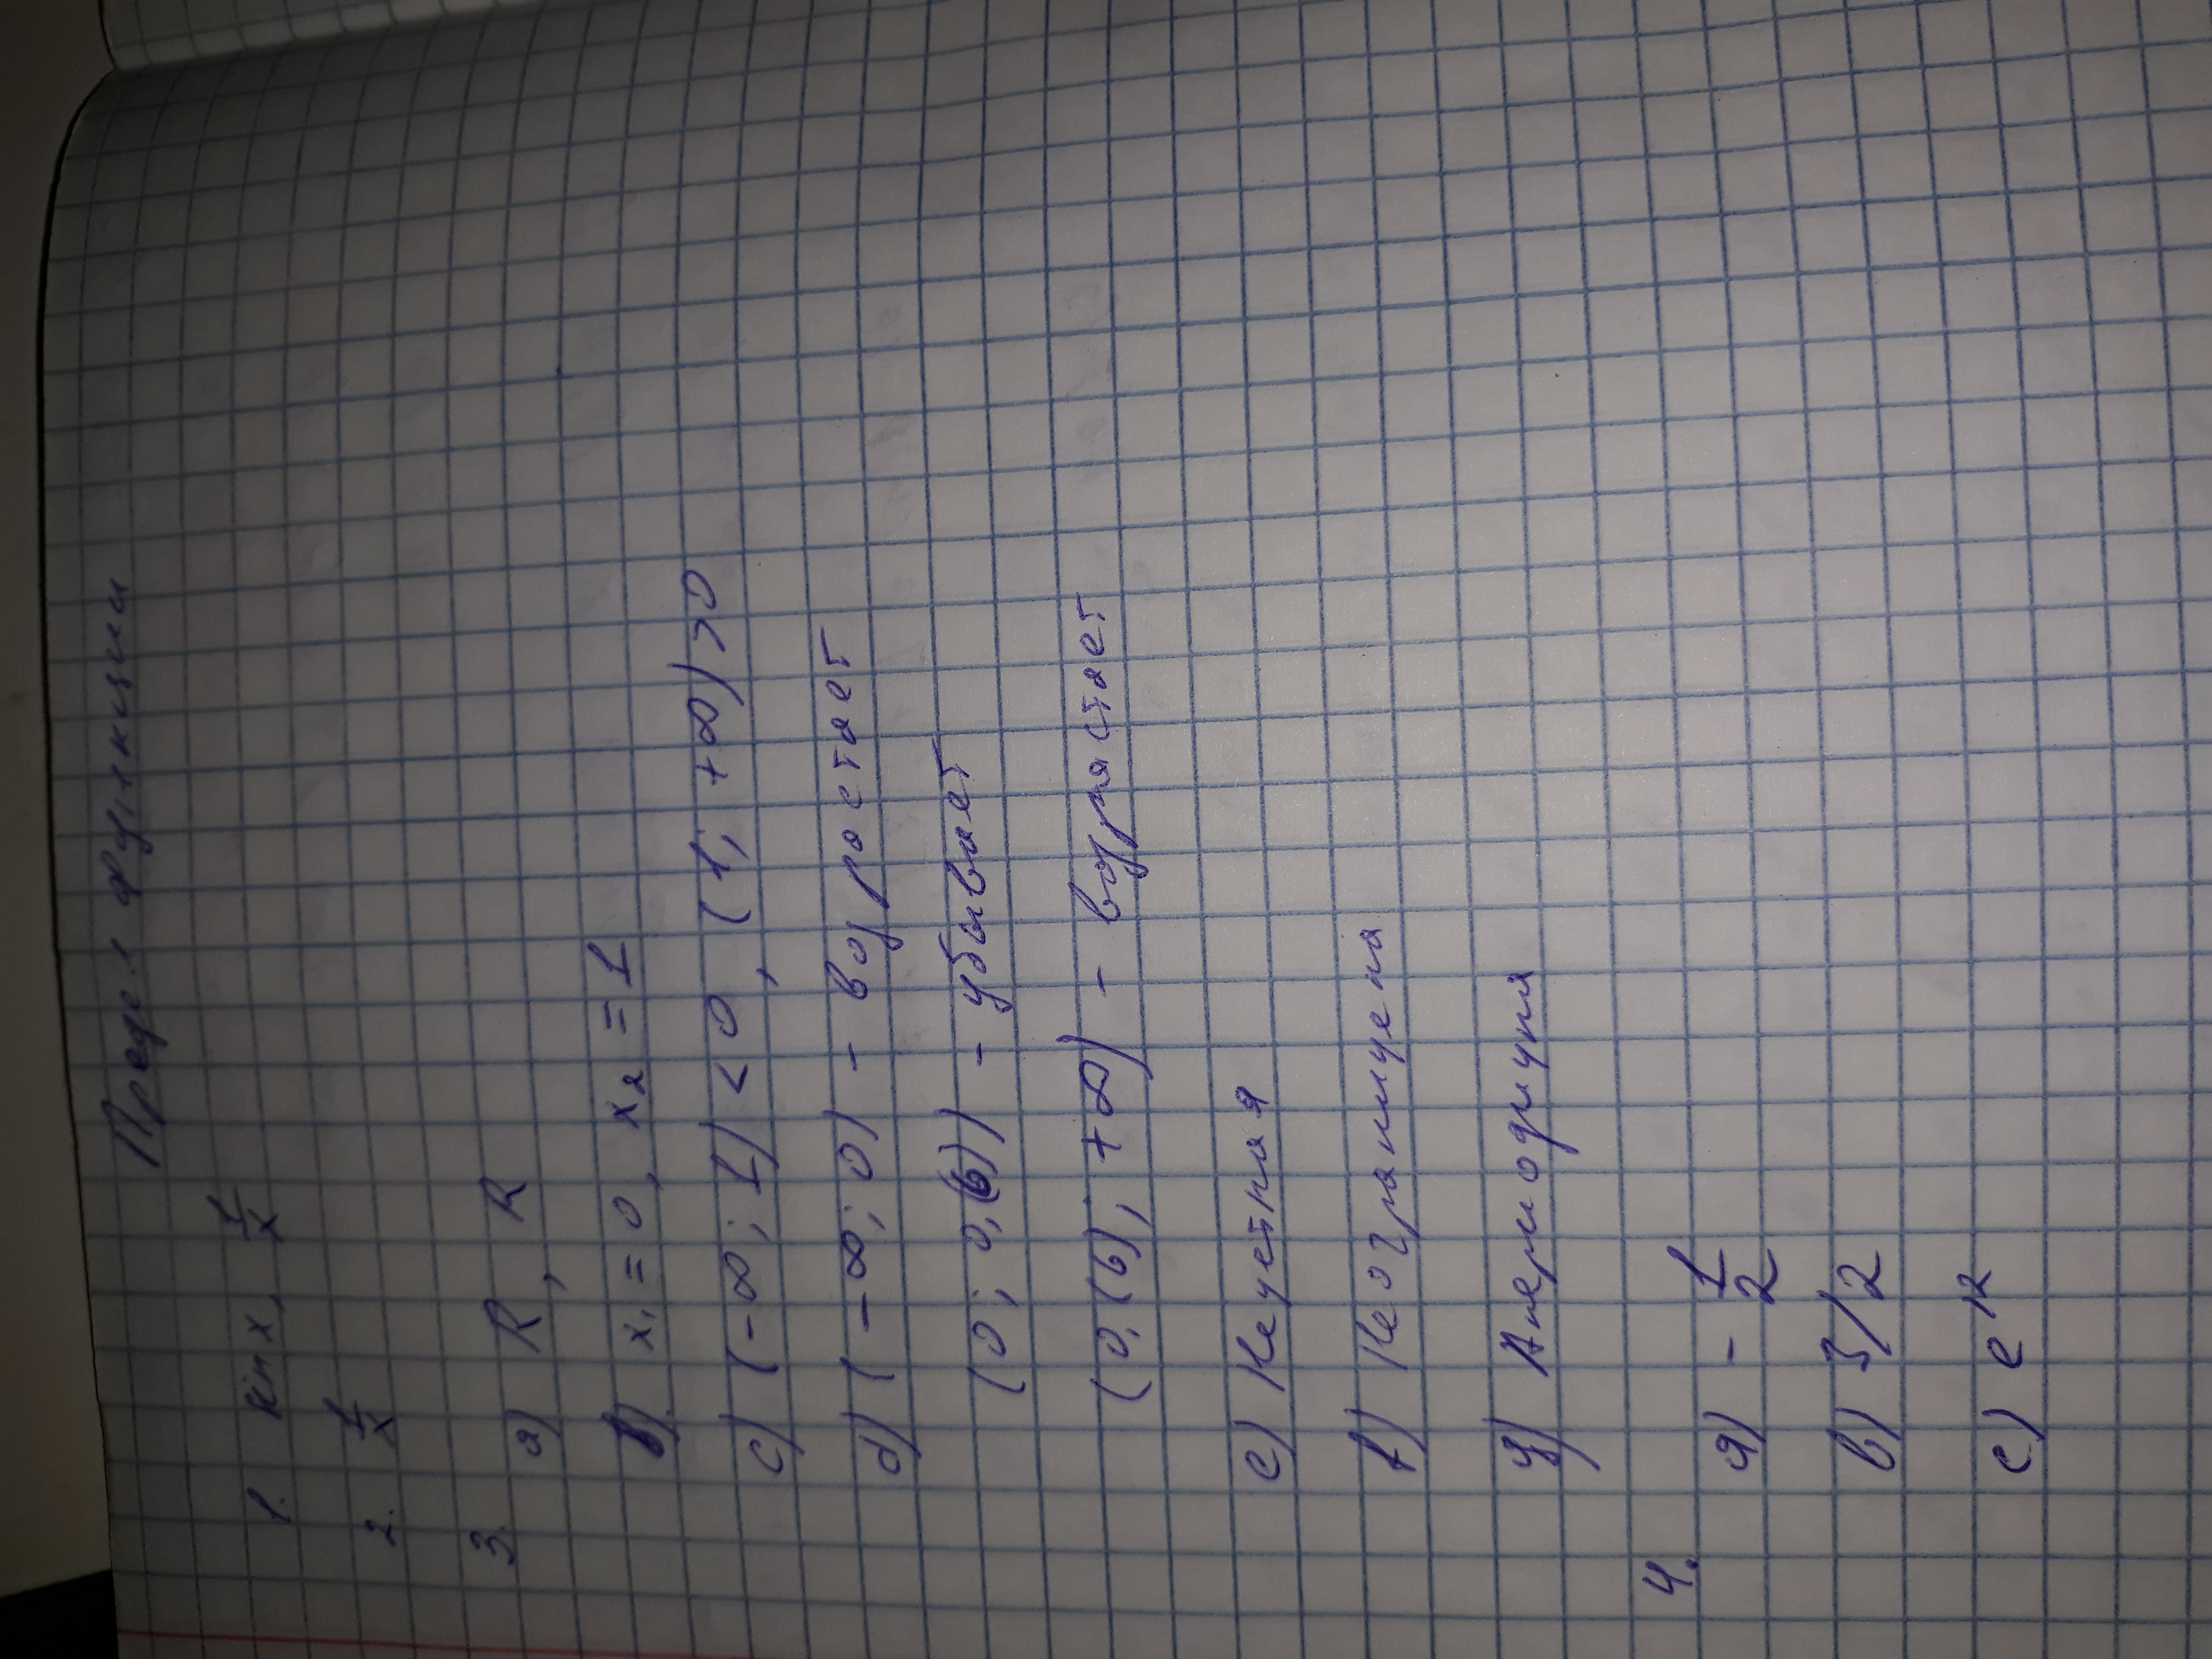 Предел функции
1. sin x, 1/x
2. 1/x
3.
a) R, R
b) x₁ = 0, x₂ = 1
c) (-∞; 1) < 0, (1; +∞) > 0
d) (-∞; 0) - возрастает
(0; 0,(6)) - убывает
(0,(6); +∞) - возрастает
e) Нечетная
f) Неограничена
g) Апериодична
4.
a) - 1/2
b) 3/2
c) e¹²